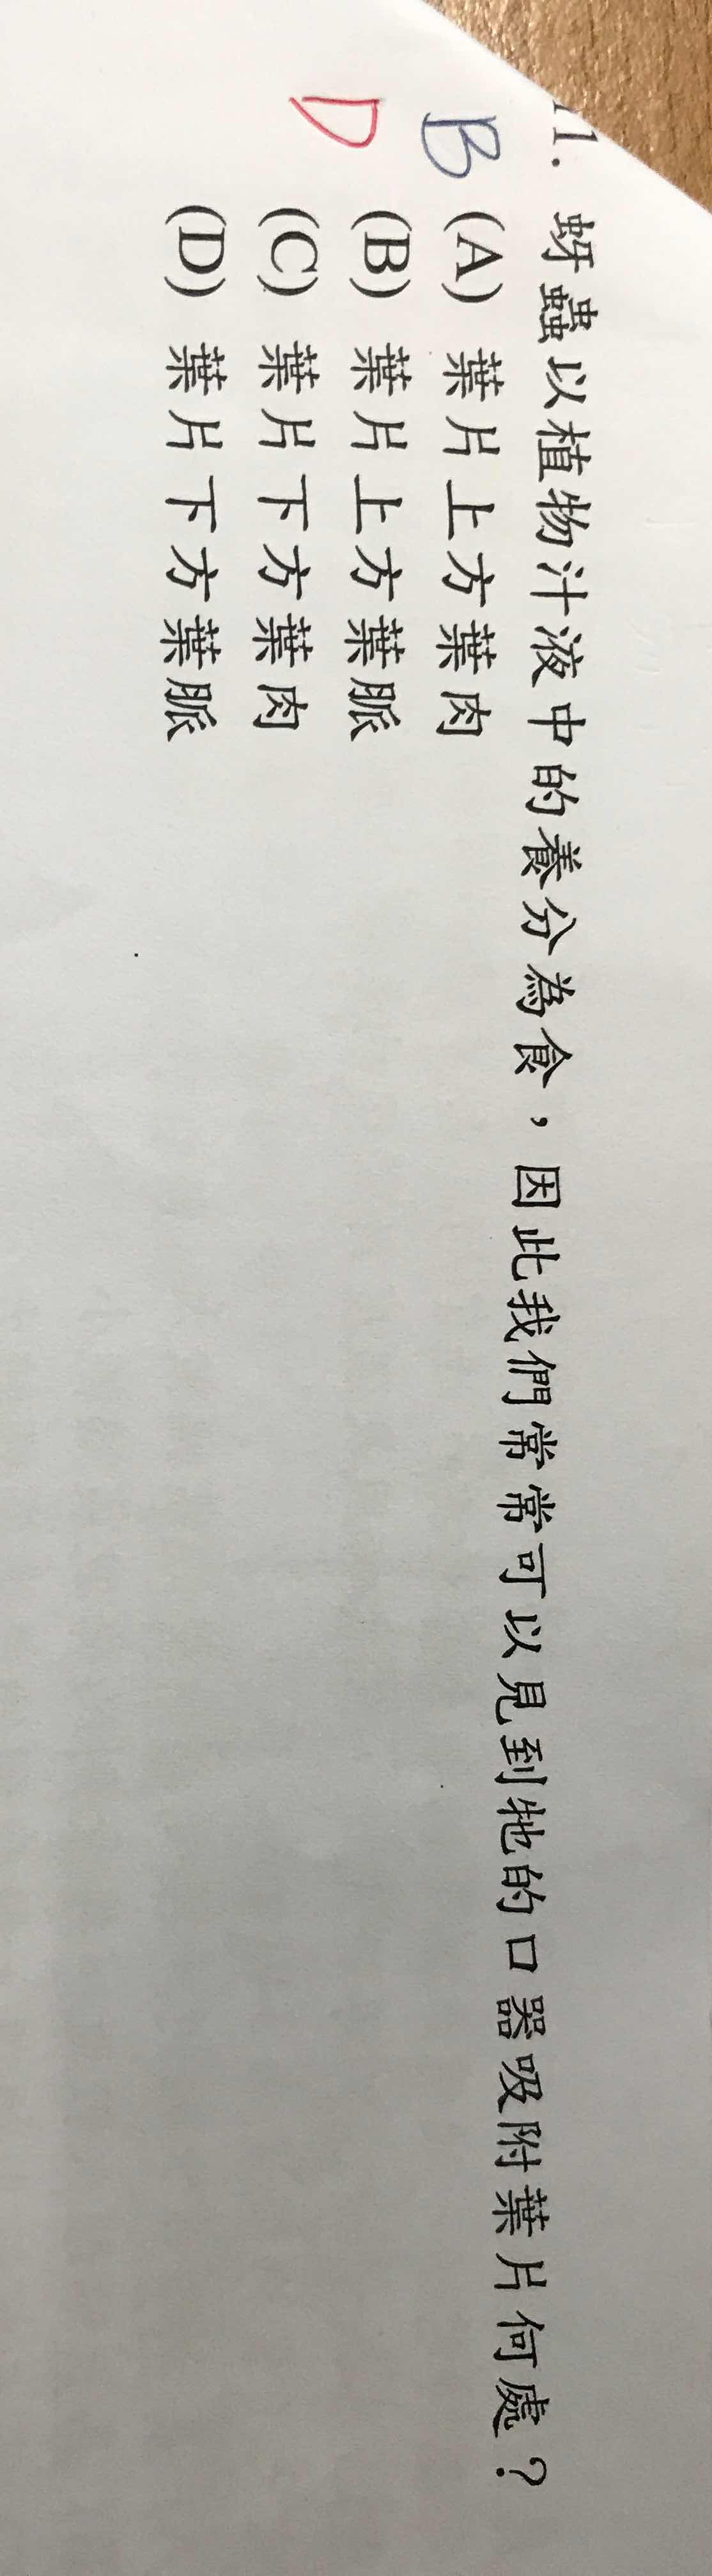 11. 蚜蟲以植物汁液中的養分為食，因此我們常常可以見到牠的口器吸附葉片何處？
B (A) 葉片上方葉肉
(B) 葉片上方葉脈
D (C) 葉片下方葉肉
(D) 葉片下方葉脈